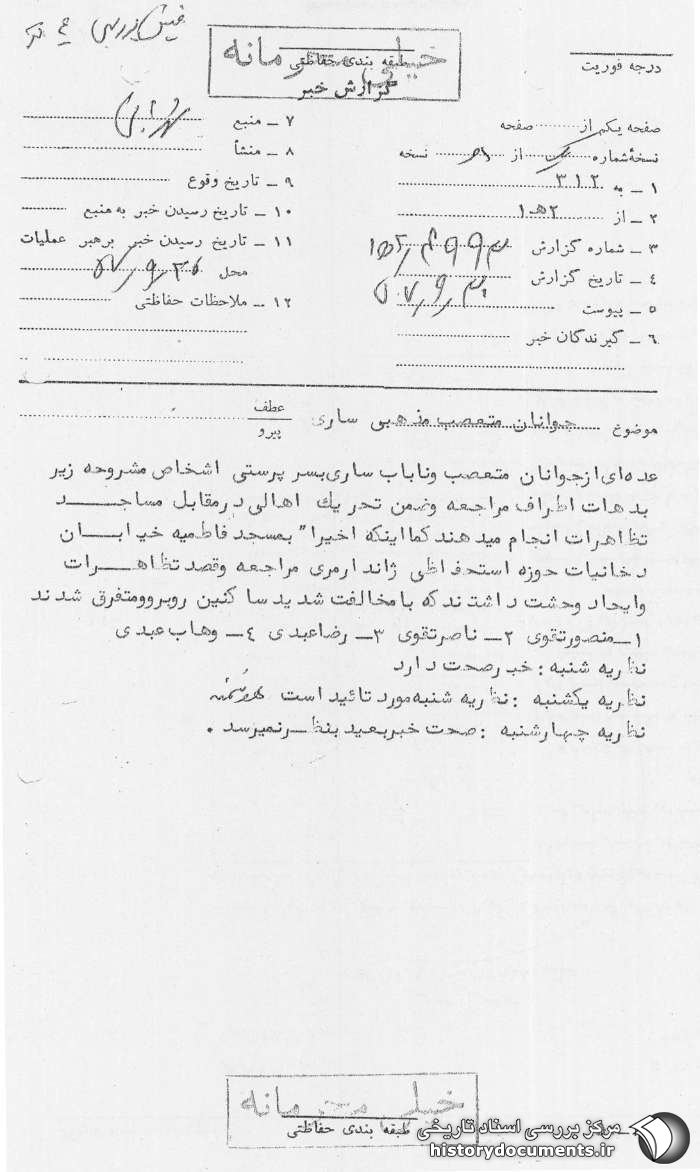 خیلی محرمانه
طبقه بندی حفاظتی
گزارش خبر
درجه فوریت
صفحه یکم از صفحه
نسخهٔ شماره از نسخه
۱ ـ به ۳۱۲
۲ ـ از ۲ﻫ۱
۳ ـ شماره گزارش
۴ ـ تاریخ گزارش
۵ ـ پیوست
۶ ـ گیرندگان خبر
۷ ـ منبع
۸ ـ منشأ
۹ ـ تاریخ وقوع
۱۰ ـ تاریخ رسیدن خبر به منبع
۱۱ ـ تاریخ رسیدن خبر برهبر عملیات
محل
۱۲ ـ ملاحظات حفاظتی
موضوع جوانان متعصب مذهبی ساری
عطف
پیرو
عده‌ای ازجوانان متعصب وناباب ساری بسر پرستی اشخاص مشروحه زیر
بدهات اطراف مراجعه وضمن تحریک اهالی درمقابل مساجد
تظاهرات انجام میدهند کمااینکه اخیرا" بمسجد فاطمیه خیابان
دخانیات حوزه استحفاظی ژاندارمری مراجعه وقصد تظاهرات
وایجاد وحشت داشتند که بامخالفت شدید ساکنین روبرو ومتفرق شدند
۱ـ منصورتقوی ۲ـ ناصرتقوی ۳ـ رضاعبدی ۴ـ وهاب عبدی
نظریه شنبه : خبر صحت دارد
نظریه یکشنبه : نظریه شنبه مورد تائید است
نظریه چهارشنبه : صحت خبر بعید بنظر نمیرسد .
خیلی محرمانه
طبقه بندی حفاظتی
مرکز بررسی اسناد تاریخی
historydocuments.ir